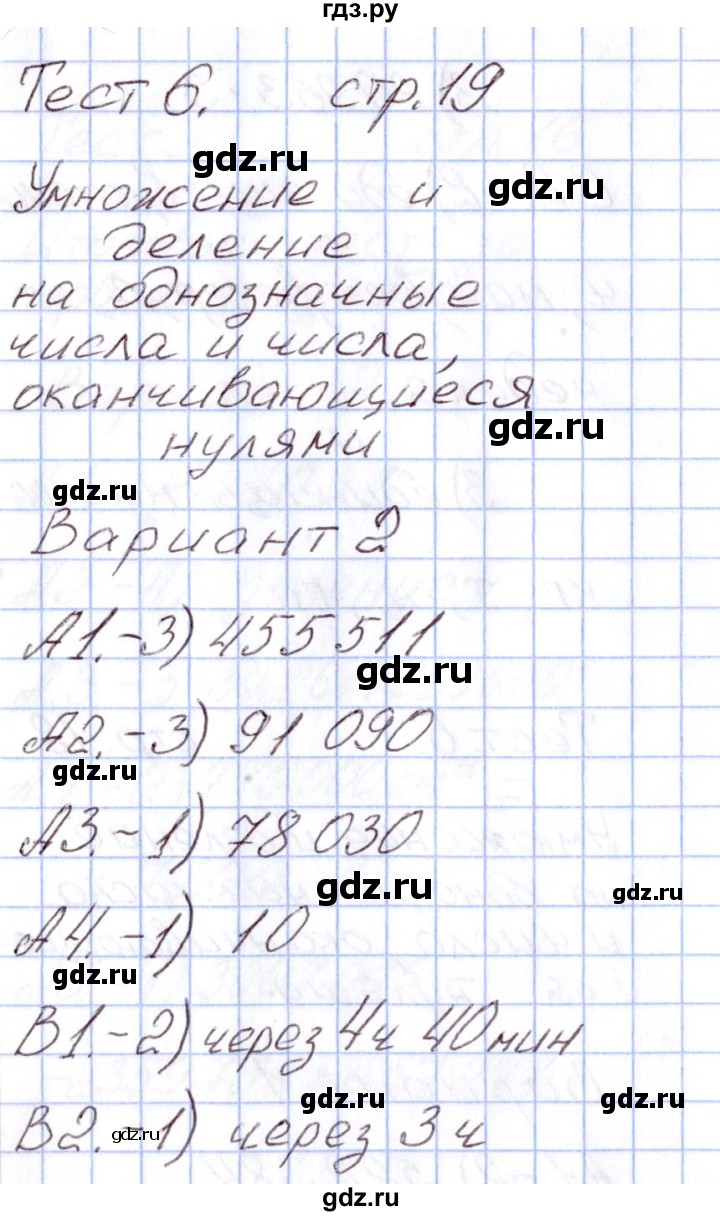 гдз.ру
Тест 6. стр. 19
gdz.ru
Умножение и
gdz.ru
деление
на однозначные
числа и числа,
оканчивающиеся
gdz.ru
нулями
gdz.ru
Вариант 2
А1.-3) 455 511
gdz.ru
А2.-3) 91 090
gdz.ru
А3.-1) 78 030
gdz.ru
gdz.ru
А4.-1) 10
gdz.ru
В1.-2) через 4ч 40мин
gdz.ru
gdz.ru
В2.-1) через 3ч
gdz.ru
gdz.ru